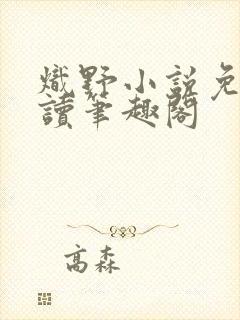 熾野小說免
讀筆趣閣
高森